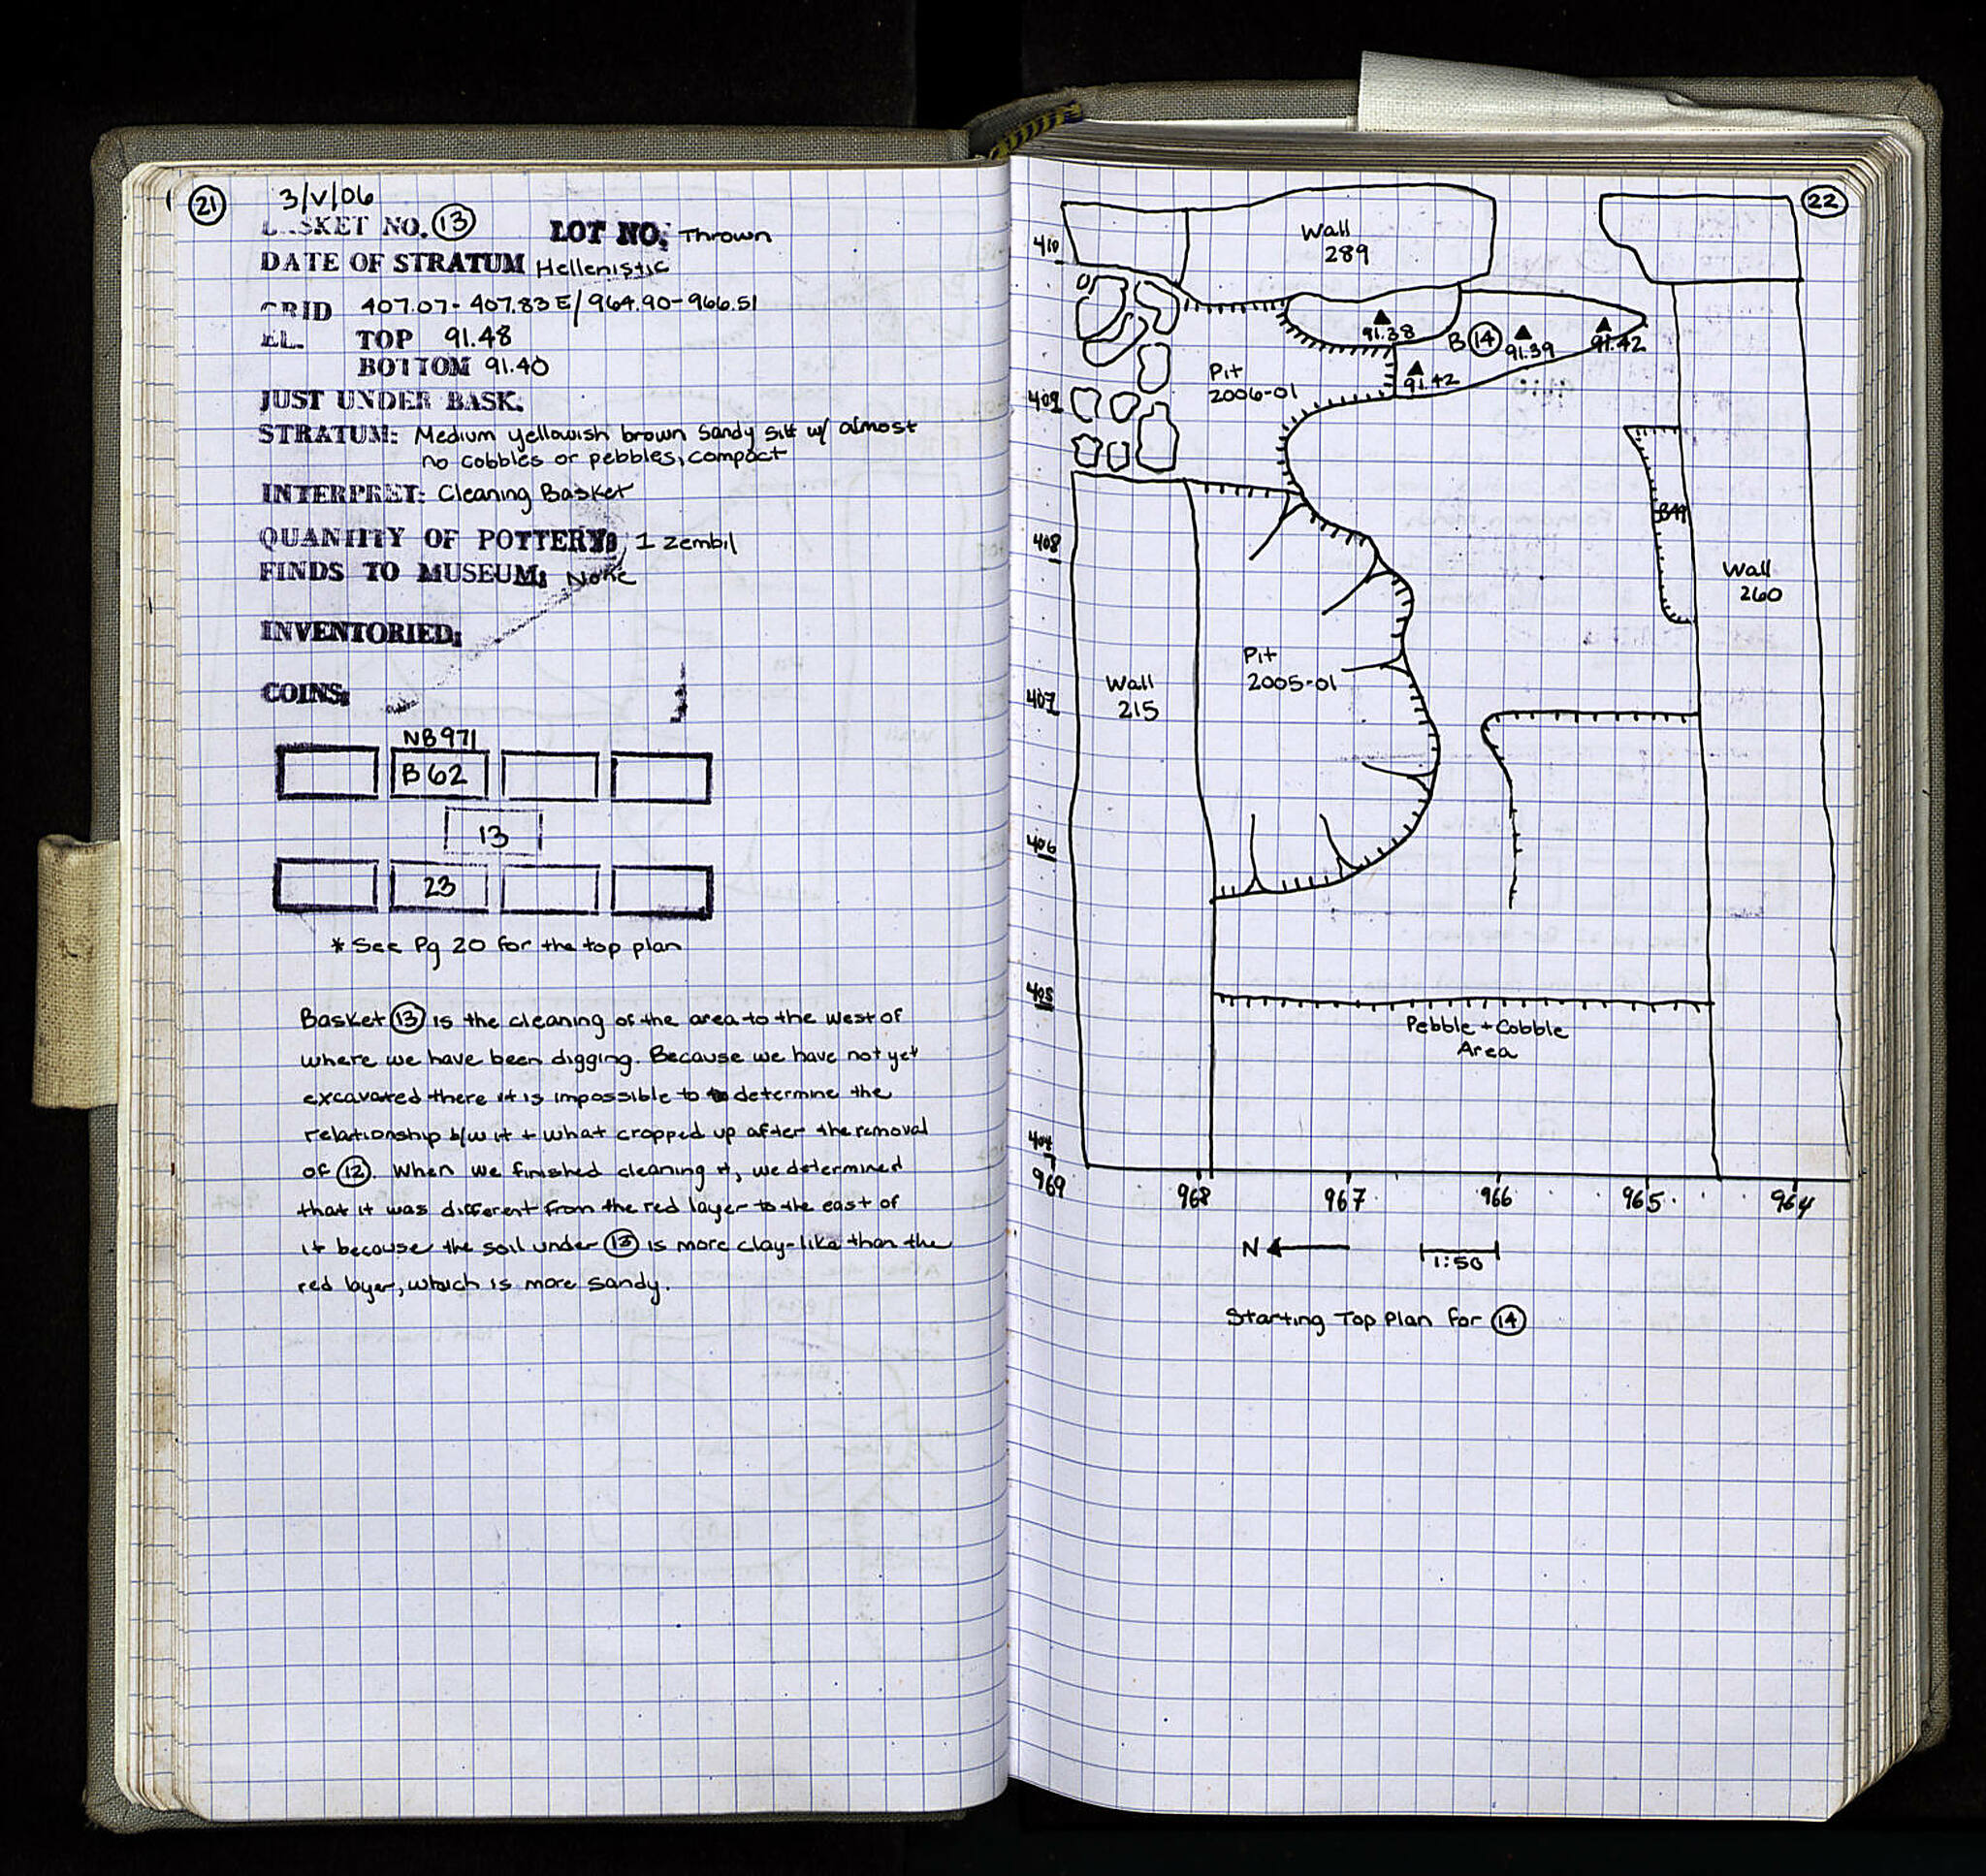 21
3/V/06
BASKET NO. 13 LOT NO. Thrown
DATE OF STRATUM Hellenistic
GRID 407.07-407.83E/964.90-966.51
EL. TOP 91.48
BOTTOM 91.40
JUST UNDER BASK.
STRATUM: Medium yellowish brown sandy silt w/ almost
no cobbles or pebbles, compact
INTERPRET: Cleaning Basket
QUANTITY OF POTTERY: 1 zembil
FINDS TO MUSEUM: None
INVENTORIED:
COINS:
NB971
B62
13
23
* See Pg 20 for the top plan
Basket 13 is the cleaning of the area to the west of
where we have been digging. Because we have not yet
excavated there it is impossible to determine the
relationship b/w it + what cropped up after the removal
of 12. When we finished cleaning it, we determined
that it was different from the red layer to the east of
it because the soil under 13 is more clay-like than the
red layer, which is more sandy.
22
410
Wall
289
91.38
B 14
91.39
91.42
91.42
Pit
2006-01
409
408
Wall
260
Pit
2005-01
Wall
215
407
406
405
Pebble + Cobble
Area
404
969 968 967 966 965 964
N
1:50
Starting Top Plan for 14